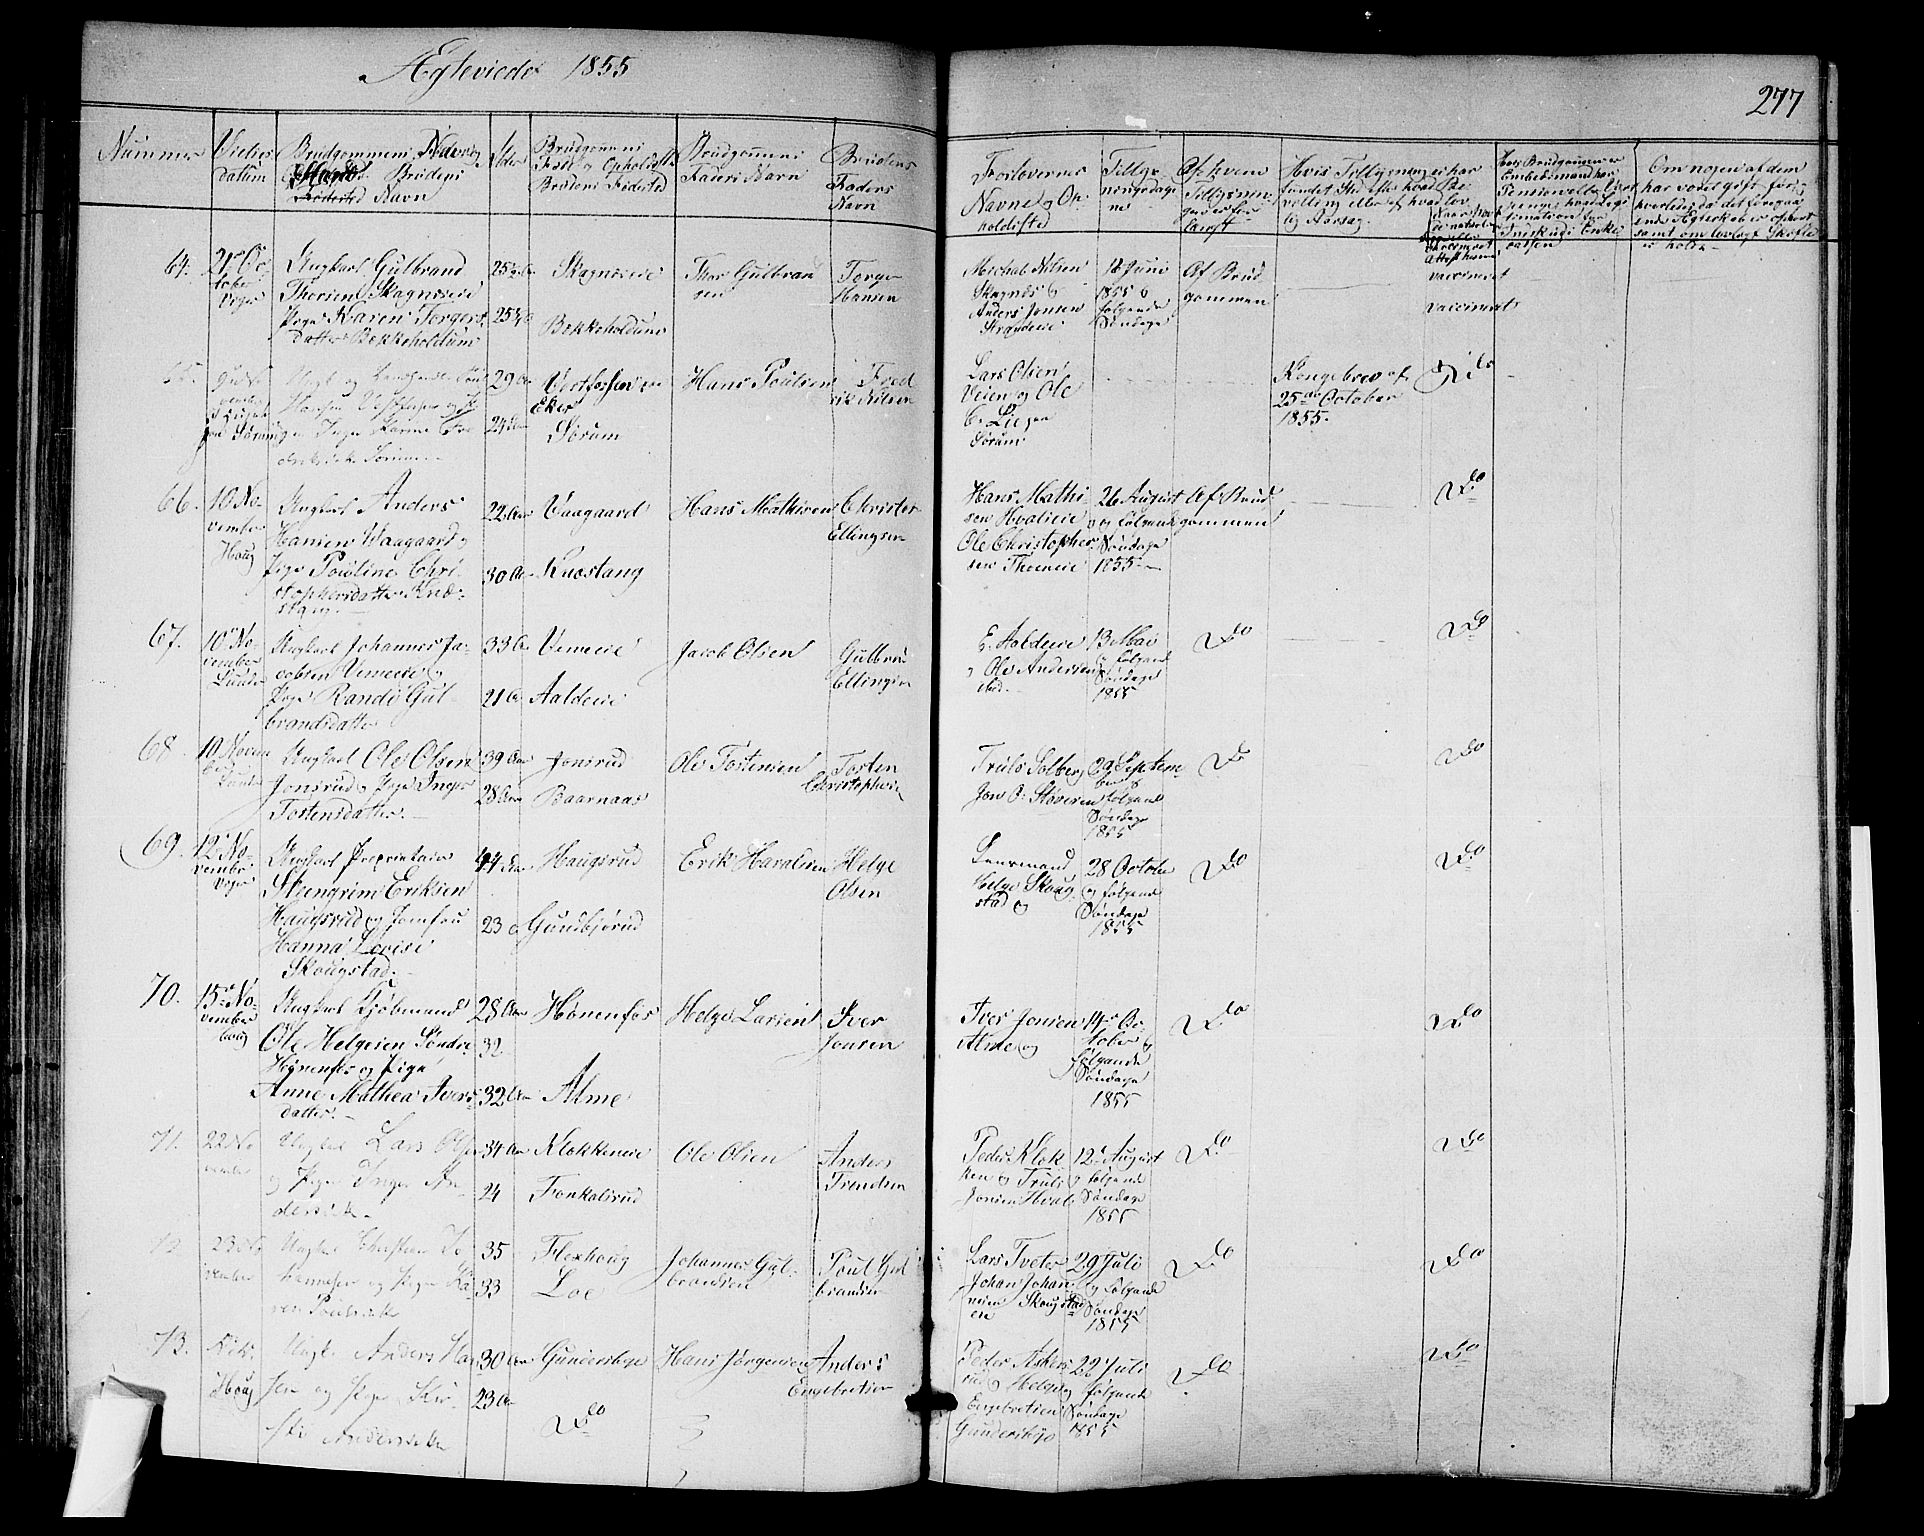 Ægteviede 1855
277
Nummer
Vielses
datum
Brudgommens Navn og
Brudens
Fødested Navn
Alder
Brudgommens
Føde og Opholdst
Brudens Fødested
Brudgommens
Faders Navn
Brudens
Faders
Navn
Forlovernes
Navne og Op
holdssted
Tillys
ningsdage
ne
Af hvem
Tillysnin
gen er for
langt
Hvis Tillysning ei har
fundet Sted efter hvad Be
villing eller af hvad lov
lig Aarsag
Om nogen af dem
har været gift før, og
hvorledes da det forega
ende Ægteskab er ophørt
samt om lovligt Skifte
er holdt
64.
21de Oc
tober
Ungkarl Gulbrand
Thorsen Skagnæseie
Pige Karen Torgers
datter Bekkeholdum
25
25
Skagnæseie
Bekkeholdum
Thor Gulbran
sen
Torger
Hansen
Michal Nilsen
Skagnæs &
Anders Jonsen
Strandeie
18 Juni
1855 &
følgende
Søndage
Af Brud
gommen
vaccineret
vaccineret
65.
Hansen Vestfossen
29 Aar
24 Aar
Vestfossen
Eker
Sørum
Hans Poulsen
Fred
rik Nilsen
Lars Olsen
Veien og Ole
Sørum
Kongebrev af
25de October
1855.
Do
66.
10 No
vember
Houg
Ungkarl Anders
Hansen Vaagaard og
Pige Pouline Chri
stophersdatter Knæ
stang
22 Aar
30 Aar
Vaagaard
Knæstang
Hans Mathisen
Christer
Ellingsen
Hans Mathi
sen Hvaleie
Ole Christopher
sen Thoeneie
26 August
og følgende
Søndage
1855
Af Brud
gommen
Do
67.
10 No
vember
Lunder
Ungkarl Johannes Ja
cobsen Vemeeie og
Pige Randi Gul
brandsdatter
33 Aar
21 Aar
Vemeeie
Aaldeeie
Jacob Olsen
Gulbran
Ellingsen
E. Aaldeeie
og Ole Andersen
ibid.
13 Mai
og følgende
Søndage
1855
Do
Do
68.
10 Novem
ber
Lunder
Ungkarl Ole Olsen
Jonsrud og Pige Inger
Tostensdatter
39 Aar
28 Aar
Jonsrud
Baarnaas
Ole Tostensen
Tosten
Christophersen
Truls Solberg
Jon O. Støveren
29 Septem
ber &
følgende
Søndage
1855
Do
Do
69.
12 No
vember
Ungkarl Proprietair
Steengrim Eriksen
Haugsrud og Jomfru
Hanna Lovise
Skougstad.
44 Aar
23
Haugsrud
Gundbjørud
Erik Haralsen
Helge
Olsen
Lensmand
Helge Skoug
stad og
28 October
og følgende
Søndage
1855
Do
Do
70.
15de No
vember
Houg
Ungkarl Kjøbmand
Ole Helgesen Søndre
Hønenfos og Pige
Anne Mathea Ivers
datter.
28 Aar
32
32 Aar
Hønenfos
Alme
Helge Larsen
Iver
Jonsen
Iver Jonsen
Alme og
14de Oc
tober og
følgende
Søndage
1855
Do
Do
71.
22 No
vember
Ungkarl Lars Olsen
og Pige Inger An
dersdtr.
34 Aar
24
Klokkeneie
Fonkalsrud
Ole Olsen
Anders
Trendsen
Peder Klok
ken og Truls
Jonsen Hval
12te August
og følgende
Søndage
1855
Do
Do
72
23 No
vember
Ungkarl Christian Jo
hannesen og Pige Ka
ren Poulsdtr.
35
33
Flexhoug
Loe
Johannes Gul
brandsen
Poul Gul
brandsen
Lars Tveter
Johan Johan
nesen Skougstad
eie
29 Juli
og følgende
Søndage
1855
Do
Do
73.
Houg
Ungk. Anders Han
sen og Pige Kir
sti Andersdtr.
30 Aar
23 Aar
Gundersbye
Do
Hans Jørgensen
Anders
Engebretsen
Peder Askers
rud og Helge
Engebretsen
Gundersbye
22 Juli
følgende
Søndage
1855
Do
Do